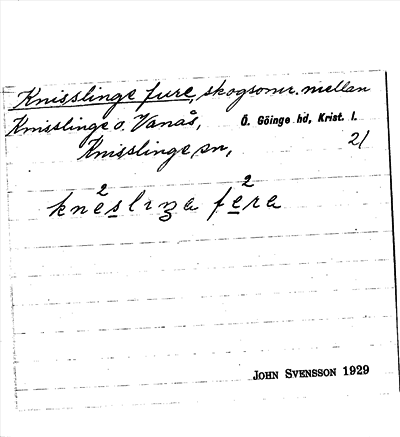 Knisslinge fure, skogsomr. mellan
Knisslinge o. Vanås, Ö. Göinge hd, Krist. l.
Knisslinge sn, 21
JOHN SVENSSON 1929